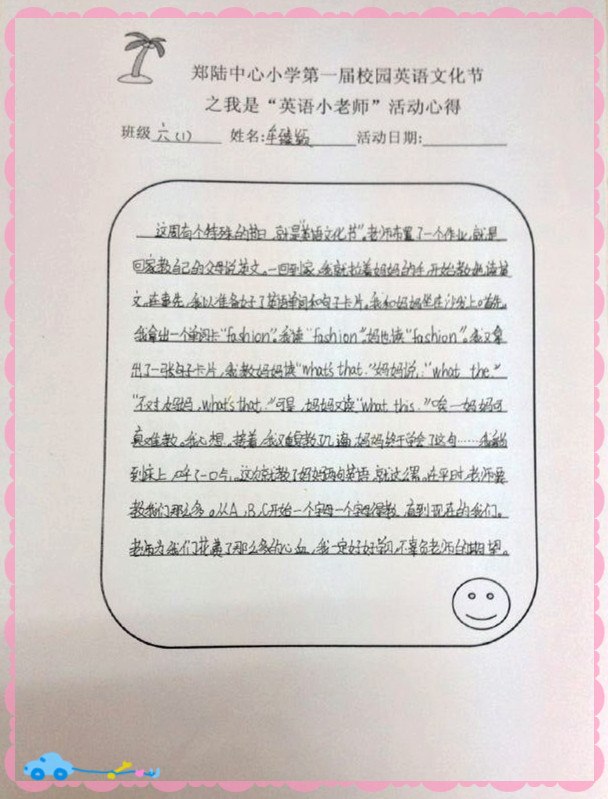 郑陆中心小学第一届校园英语文化节
之我是“英语小老师”活动心得
班级 六(1) 姓名: 活动日期:
这周有个特殊的节日,就是“英语文化节”。老师布置了一个作业,就是
回家教自己的父母说英文。一回到家,我就拉着妈妈的手,开始教她读英
文。在事先,我以准备好了英语单词和句子卡片。我和妈妈坐在沙发上。首先,
我拿出一个单词卡“fashion”。我读“fashion”,妈也读“fashion”。我又拿
出了一张句子卡片,我教妈妈读“what's that.”妈妈说:“what the”
“不对,妈妈,what's that.”可是,妈妈又读“what this.”唉—妈妈可
真难教。我心想。接着,我又重复教了几遍,妈妈终于学会了这句……我躺
到床上,呼了一口气。这次就教了妈妈两句英语,就这么累,在平时,老师要
教我们那么多。从A,B,C开始一个字母一个字母得教,直到现在的我们。
老师为我们花费了那么多的心血,我一定好好学习,不辜负老师的期望。